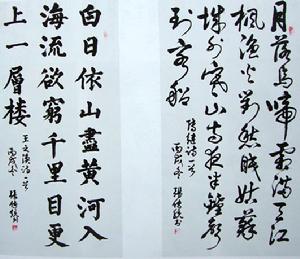 月落烏啼霜满天江
楓漁火對愁眠姑蘇
城外寒山寺夜半鐘聲
到客船
張继诗一首
丙戌冬
白日依山盡黄河入
海流欲窮千里目更
上一層楼
王之涣诗一首
丙戌冬